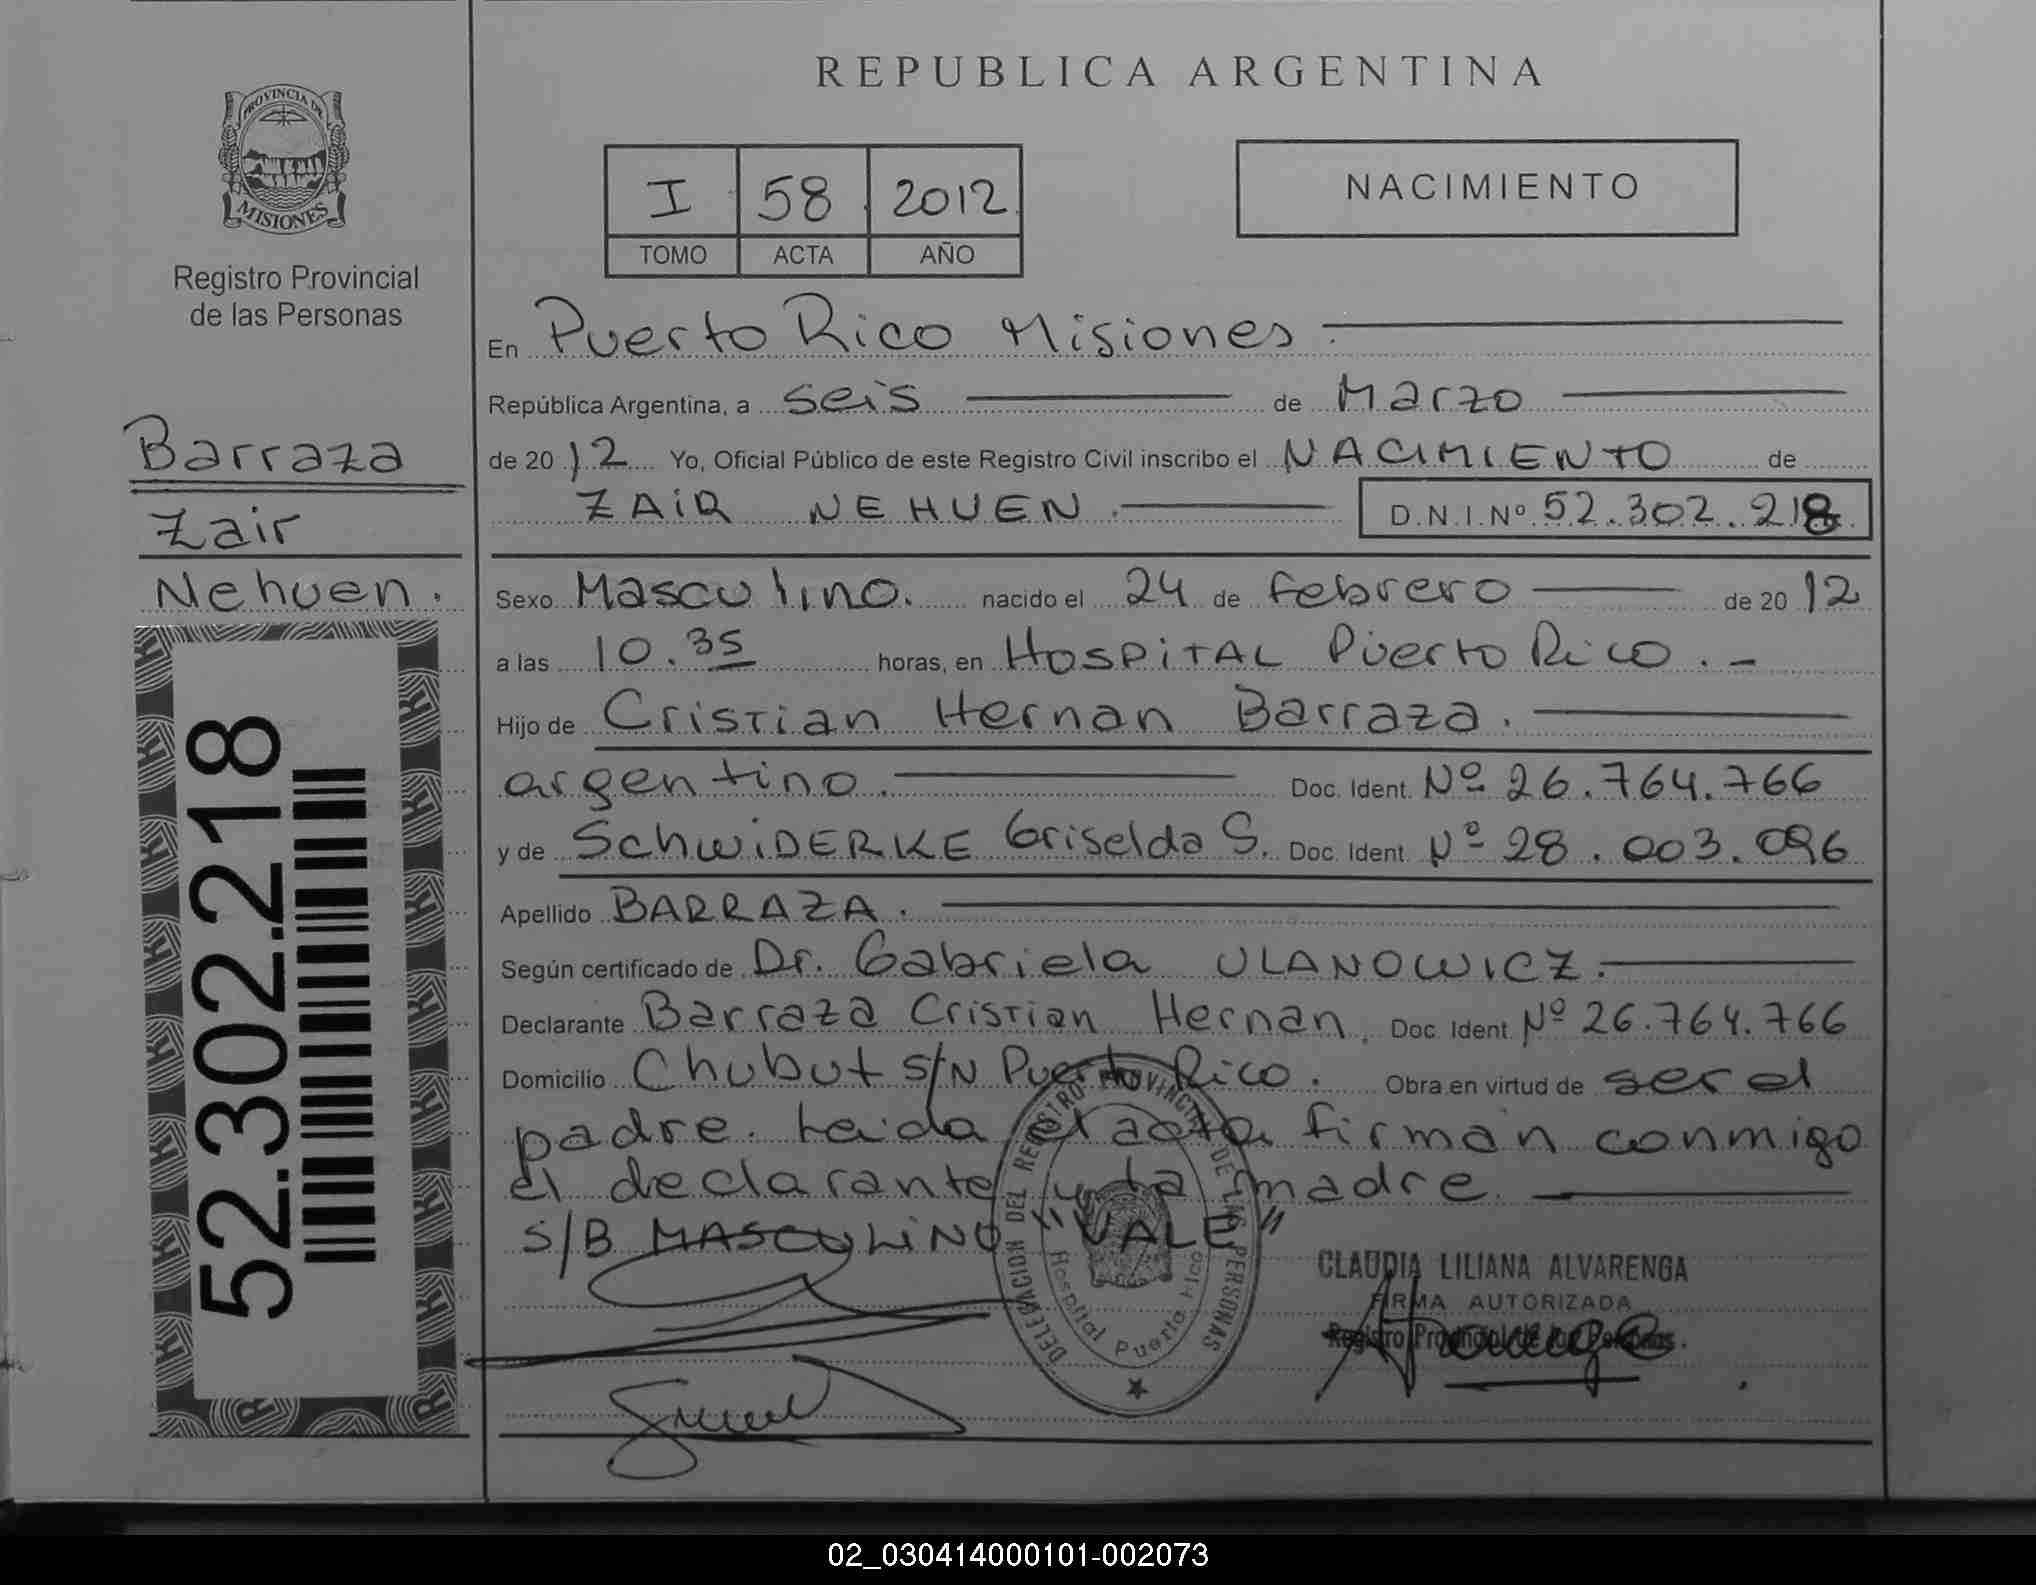 REPUBLICA ARGENTINA
PROVINCIA DE
MISIONES
Registro Provincial
de las Personas
I 58 2012
TOMO ACTA AÑO
NACIMIENTO
Barraza
Zair
Nehuen.
52.302.218
En Puerto Rico Misiones
República Argentina, a seis de Marzo
de 2012 Yo, Oficial Público de este Registro Civil inscribo el NACIMIENTO de
ZAiR NEHUEN. D.N.I.Nº 52.302.218
Sexo Masculino. nacido el 24 de febrero de 2012
a las 10.35 horas, en HOSPiTAL Puerto Rico. -
Hijo de Cristian Hernan Barraza.
argentino. Doc. Ident. Nº 26.764.766
y de SchwiDERKE Griselda S. Doc. Ident. Nº 28.003.096
Apellido BARRAZA.
Según certificado de Dr. Gabriela ULANOWICZ.
Declarante Barraza Cristian Hernan, Doc. Ident. Nº 26.764.766
Domicilio Chubut S/N Puerto Rico. Obra en virtud de ser el
padre. Leida el acta firman conmigo
el declarante y la madre.
S/B MASCULiNO "VALE"
DELEGACION DEL REGISTRO PROVINCIAL DE LAS PERSONAS
Hospital Puerto Rico
CLAUDIA LILIANA ALVARENGA
FIRMA AUTORIZADA
Registro Provincial de las Personas.
02_030414000101-002073